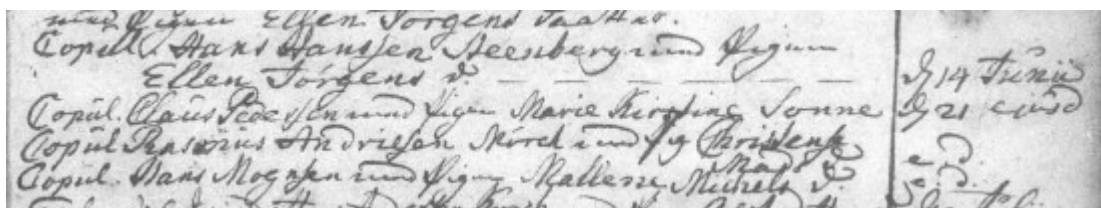 Pigen Ellen Jörgens Daatter.
Copul. Hans Hanssen Steenberg und Pigen
Ellen Jörgens D. — — — — — d 14 Junii
Copul. Claus Pedersen und Pigen Marie Kirstine Sonne d 21 ejusd
Copul Rasmus Andriesen Mörck und Pig Christense
Mads D e. d.
Copul. Hans Mognsen und Pigen Mallene Michels D. e. d.